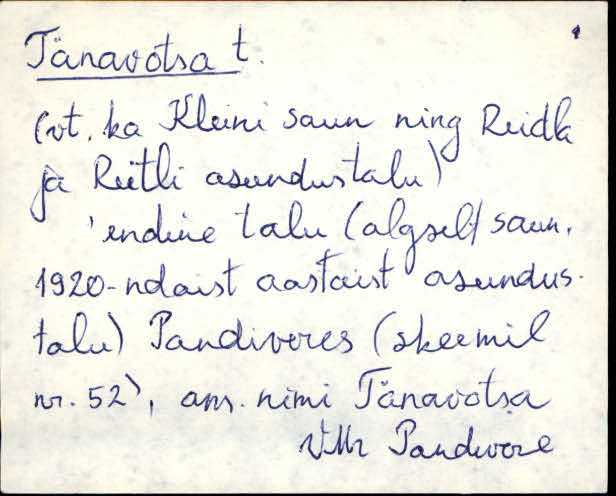 Tänavotsa t.
(vt. ka Kleini saun ning Reidla
ja Reitli asundustalu)
'endine talu (algselt saun,
1920-ndaist aastaist asundus-
talu) Pandiveres (skeemil
nr. 52), ans. nimi Tänavotsa
VMr Pandivere